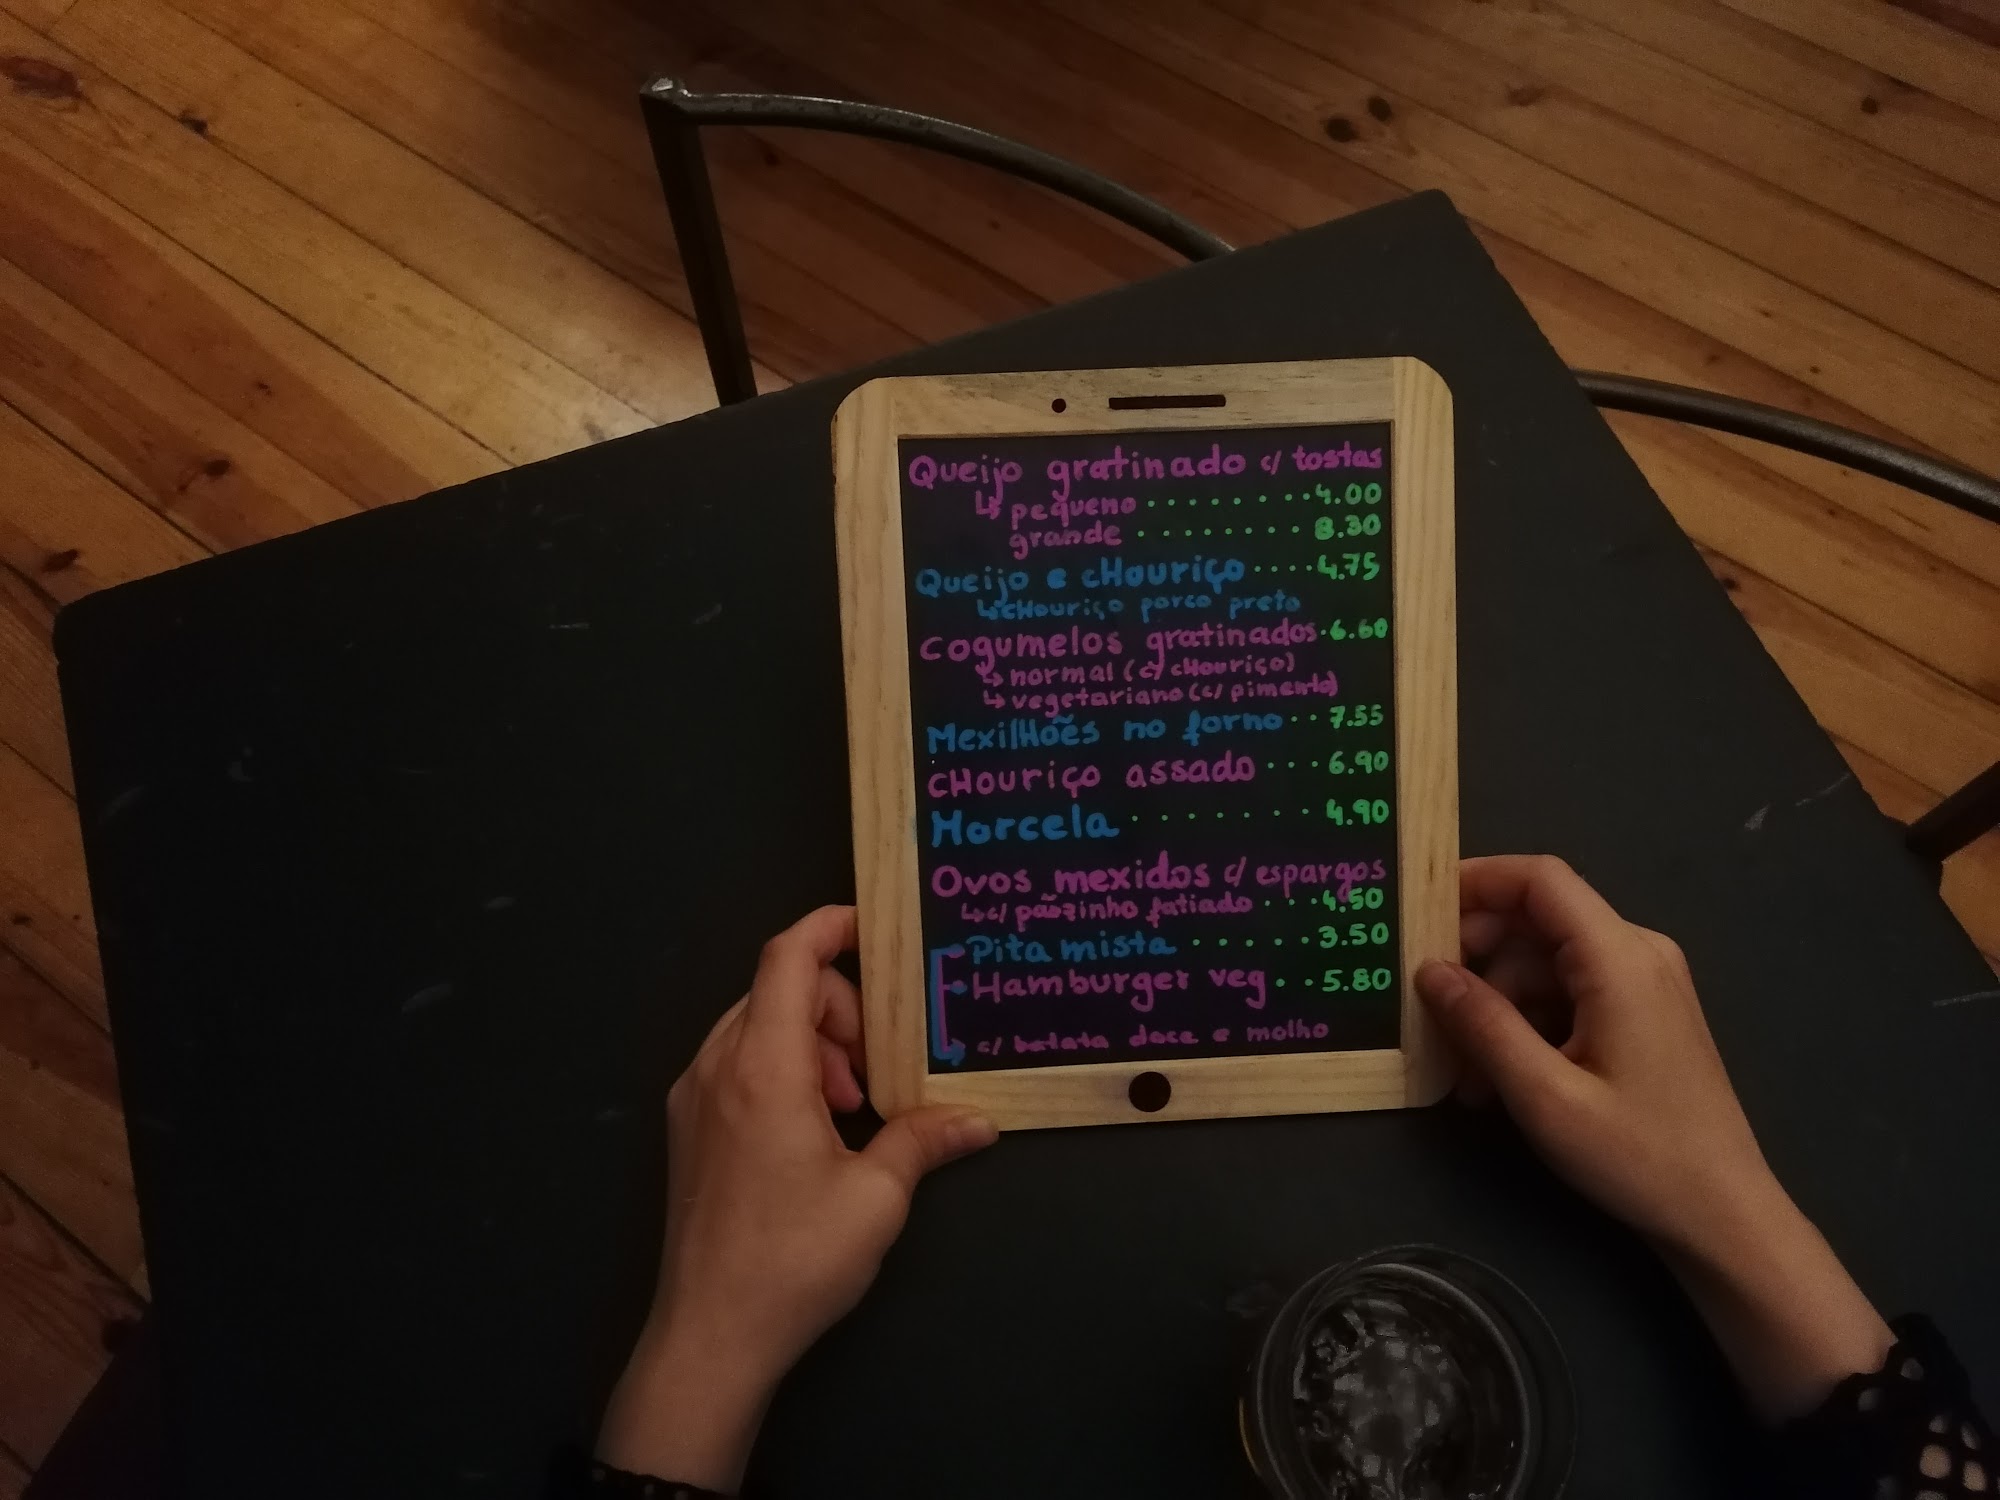 Queijo gratinado c/ tostas
↳ pequeno ········4.00
grande ········ 8.30
Queijo e cHouriço····4.75
↳cHouriço porco preto
cogumelos gratinados·6.60
↳normal (c/ cHouriço)
↳vegetariano (c/ pimento)
MexilHões no forno·· 7.55
cHouriço assado ··· 6.90
Morcela ······· 4.90
Ovos mexidos c/ espargos
↳c/ pãozinho fatiado ···4.50
Pita mista ·····3.50
Hamburger veg··5.80
↳ c/ batata doce e molho